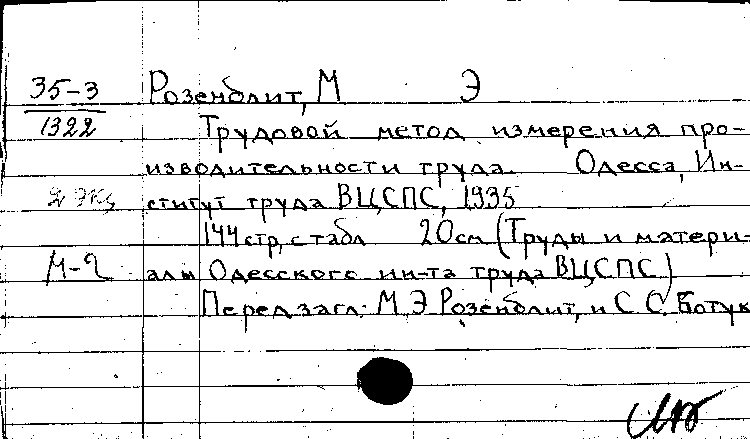 35-3 Розенблит, М Э
1322 Трудовой метод измерения про-
изводительности труда. Одесса, Ин-
2 экз ститут труда ВЦСПС, 1935
144 стр, с табл 20 см (Труды и матери-
М-2 алы Одесского ин-та труда ВЦСПС)
Перед загл: М. Э Розенблит, и С С. Ботук